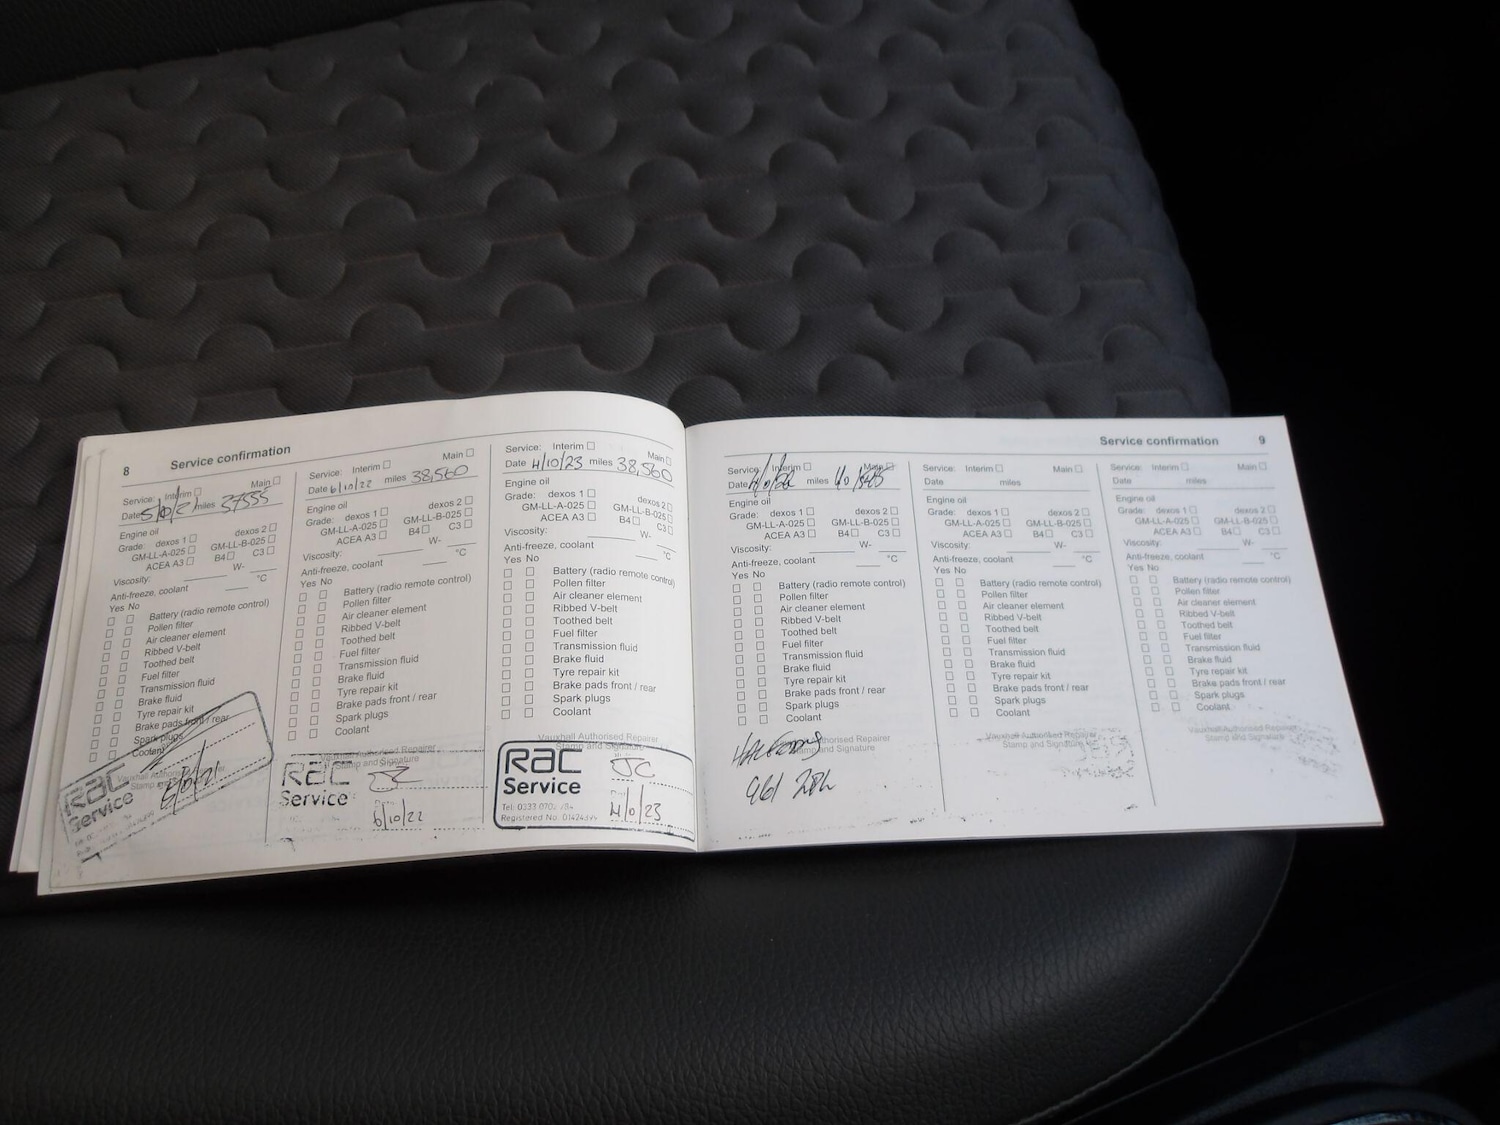 8 Service confirmation
Service: Interim ☐ Main ☐
Date 5/10/21 miles 37555
Engine oil
Grade: dexos 1 ☐ dexos 2 ☐
GM-LL-A-025 ☐ GM-LL-B-025 ☐
ACEA A3 ☐ B4 ☐ C3 ☐
Viscosity: W-
Anti-freeze, coolant °C
Yes No
☐ ☐ Battery (radio remote control)
☐ ☐ Pollen filter
☐ ☐ Air cleaner element
☐ ☐ Ribbed V-belt
☐ ☐ Toothed belt
☐ ☐ Fuel filter
☐ ☐ Transmission fluid
☐ ☐ Brake fluid
☐ ☐ Tyre repair kit
☐ ☐ Brake pads front / rear
☐ ☐ Spark plugs
☐ ☐ Coolant
Vauxhall Authorised
Stamp
RAC
Service
Service: Interim ☐ Main ☐
Date 6/10/22 miles 38,560
Engine oil
Grade: dexos 1 ☐ dexos 2 ☐
GM-LL-A-025 ☐ GM-LL-B-025 ☐
ACEA A3 ☐ B4 ☐ C3 ☐
Viscosity: W-
Anti-freeze, coolant °C
Yes No
☐ ☐ Battery (radio remote control)
☐ ☐ Pollen filter
☐ ☐ Air cleaner element
☐ ☐ Ribbed V-belt
☐ ☐ Toothed belt
☐ ☐ Fuel filter
☐ ☐ Transmission fluid
☐ ☐ Brake fluid
☐ ☐ Tyre repair kit
☐ ☐ Brake pads front / rear
☐ ☐ Spark plugs
☐ ☐ Coolant
Vauxhall Authorised Repairer
Stamp and Signature
RAC JC
Service
6/10/22
Service: Interim ☐ Main ☐
Date 4/10/23 miles 38,560
Engine oil
Grade: dexos 1 ☐ dexos 2 ☐
GM-LL-A-025 ☐ GM-LL-B-025 ☐
ACEA A3 ☐ B4 ☐ C3 ☐
Viscosity: W-
Anti-freeze, coolant °C
Yes No
☐ ☐ Battery (radio remote control)
☐ ☐ Pollen filter
☐ ☐ Air cleaner element
☐ ☐ Ribbed V-belt
☐ ☐ Toothed belt
☐ ☐ Fuel filter
☐ ☐ Transmission fluid
☐ ☐ Brake fluid
☐ ☐ Tyre repair kit
☐ ☐ Brake pads front / rear
☐ ☐ Spark plugs
☐ ☐ Coolant
Vauxhall Authorised Repairer
Stamp and Signature
RAC JC
Service
Tel: 0333 0702
Registered No.
4/10/23
Service confirmation 9
Service: Interim ☐ Main ☐
Date miles
Engine oil
Grade: dexos 1 ☐ dexos 2 ☐
GM-LL-A-025 ☐ GM-LL-B-025 ☐
ACEA A3 ☐ B4 ☐ C3 ☐
Viscosity: W-
Anti-freeze, coolant °C
Yes No
☐ ☐ Battery (radio remote control)
☐ ☐ Pollen filter
☐ ☐ Air cleaner element
☐ ☐ Ribbed V-belt
☐ ☐ Toothed belt
☐ ☐ Fuel filter
☐ ☐ Transmission fluid
☐ ☐ Brake fluid
☐ ☐ Tyre repair kit
☐ ☐ Brake pads front / rear
☐ ☐ Spark plugs
☐ ☐ Coolant
Authorised Repairer
Stamp and Signature
Service: Interim ☐ Main ☐
Date miles
Engine oil
Grade: dexos 1 ☐ dexos 2 ☐
GM-LL-A-025 ☐ GM-LL-B-025 ☐
ACEA A3 ☐ B4 ☐ C3 ☐
Viscosity: W-
Anti-freeze, coolant °C
Yes No
☐ ☐ Battery (radio remote control)
☐ ☐ Pollen filter
☐ ☐ Air cleaner element
☐ ☐ Ribbed V-belt
☐ ☐ Toothed belt
☐ ☐ Fuel filter
☐ ☐ Transmission fluid
☐ ☐ Brake fluid
☐ ☐ Tyre repair kit
☐ ☐ Brake pads front / rear
☐ ☐ Spark plugs
☐ ☐ Coolant
Vauxhall Authorised Repairer
Stamp and Signature
Service: Interim ☐ Main ☐
Date miles
Engine oil
Grade: dexos 1 ☐ dexos 2 ☐
GM-LL-A-025 ☐ GM-LL-B-025 ☐
ACEA A3 ☐ B4 ☐ C3 ☐
Viscosity: W-
Anti-freeze, coolant °C
Yes No
☐ ☐ Battery (radio remote control)
☐ ☐ Pollen filter
☐ ☐ Air cleaner element
☐ ☐ Ribbed V-belt
☐ ☐ Toothed belt
☐ ☐ Fuel filter
☐ ☐ Transmission fluid
☐ ☐ Brake fluid
☐ ☐ Tyre repair kit
☐ ☐ Brake pads front / rear
☐ ☐ Spark plugs
☐ ☐ Coolant
Vauxhall Authorised Repairer
Stamp and Signature